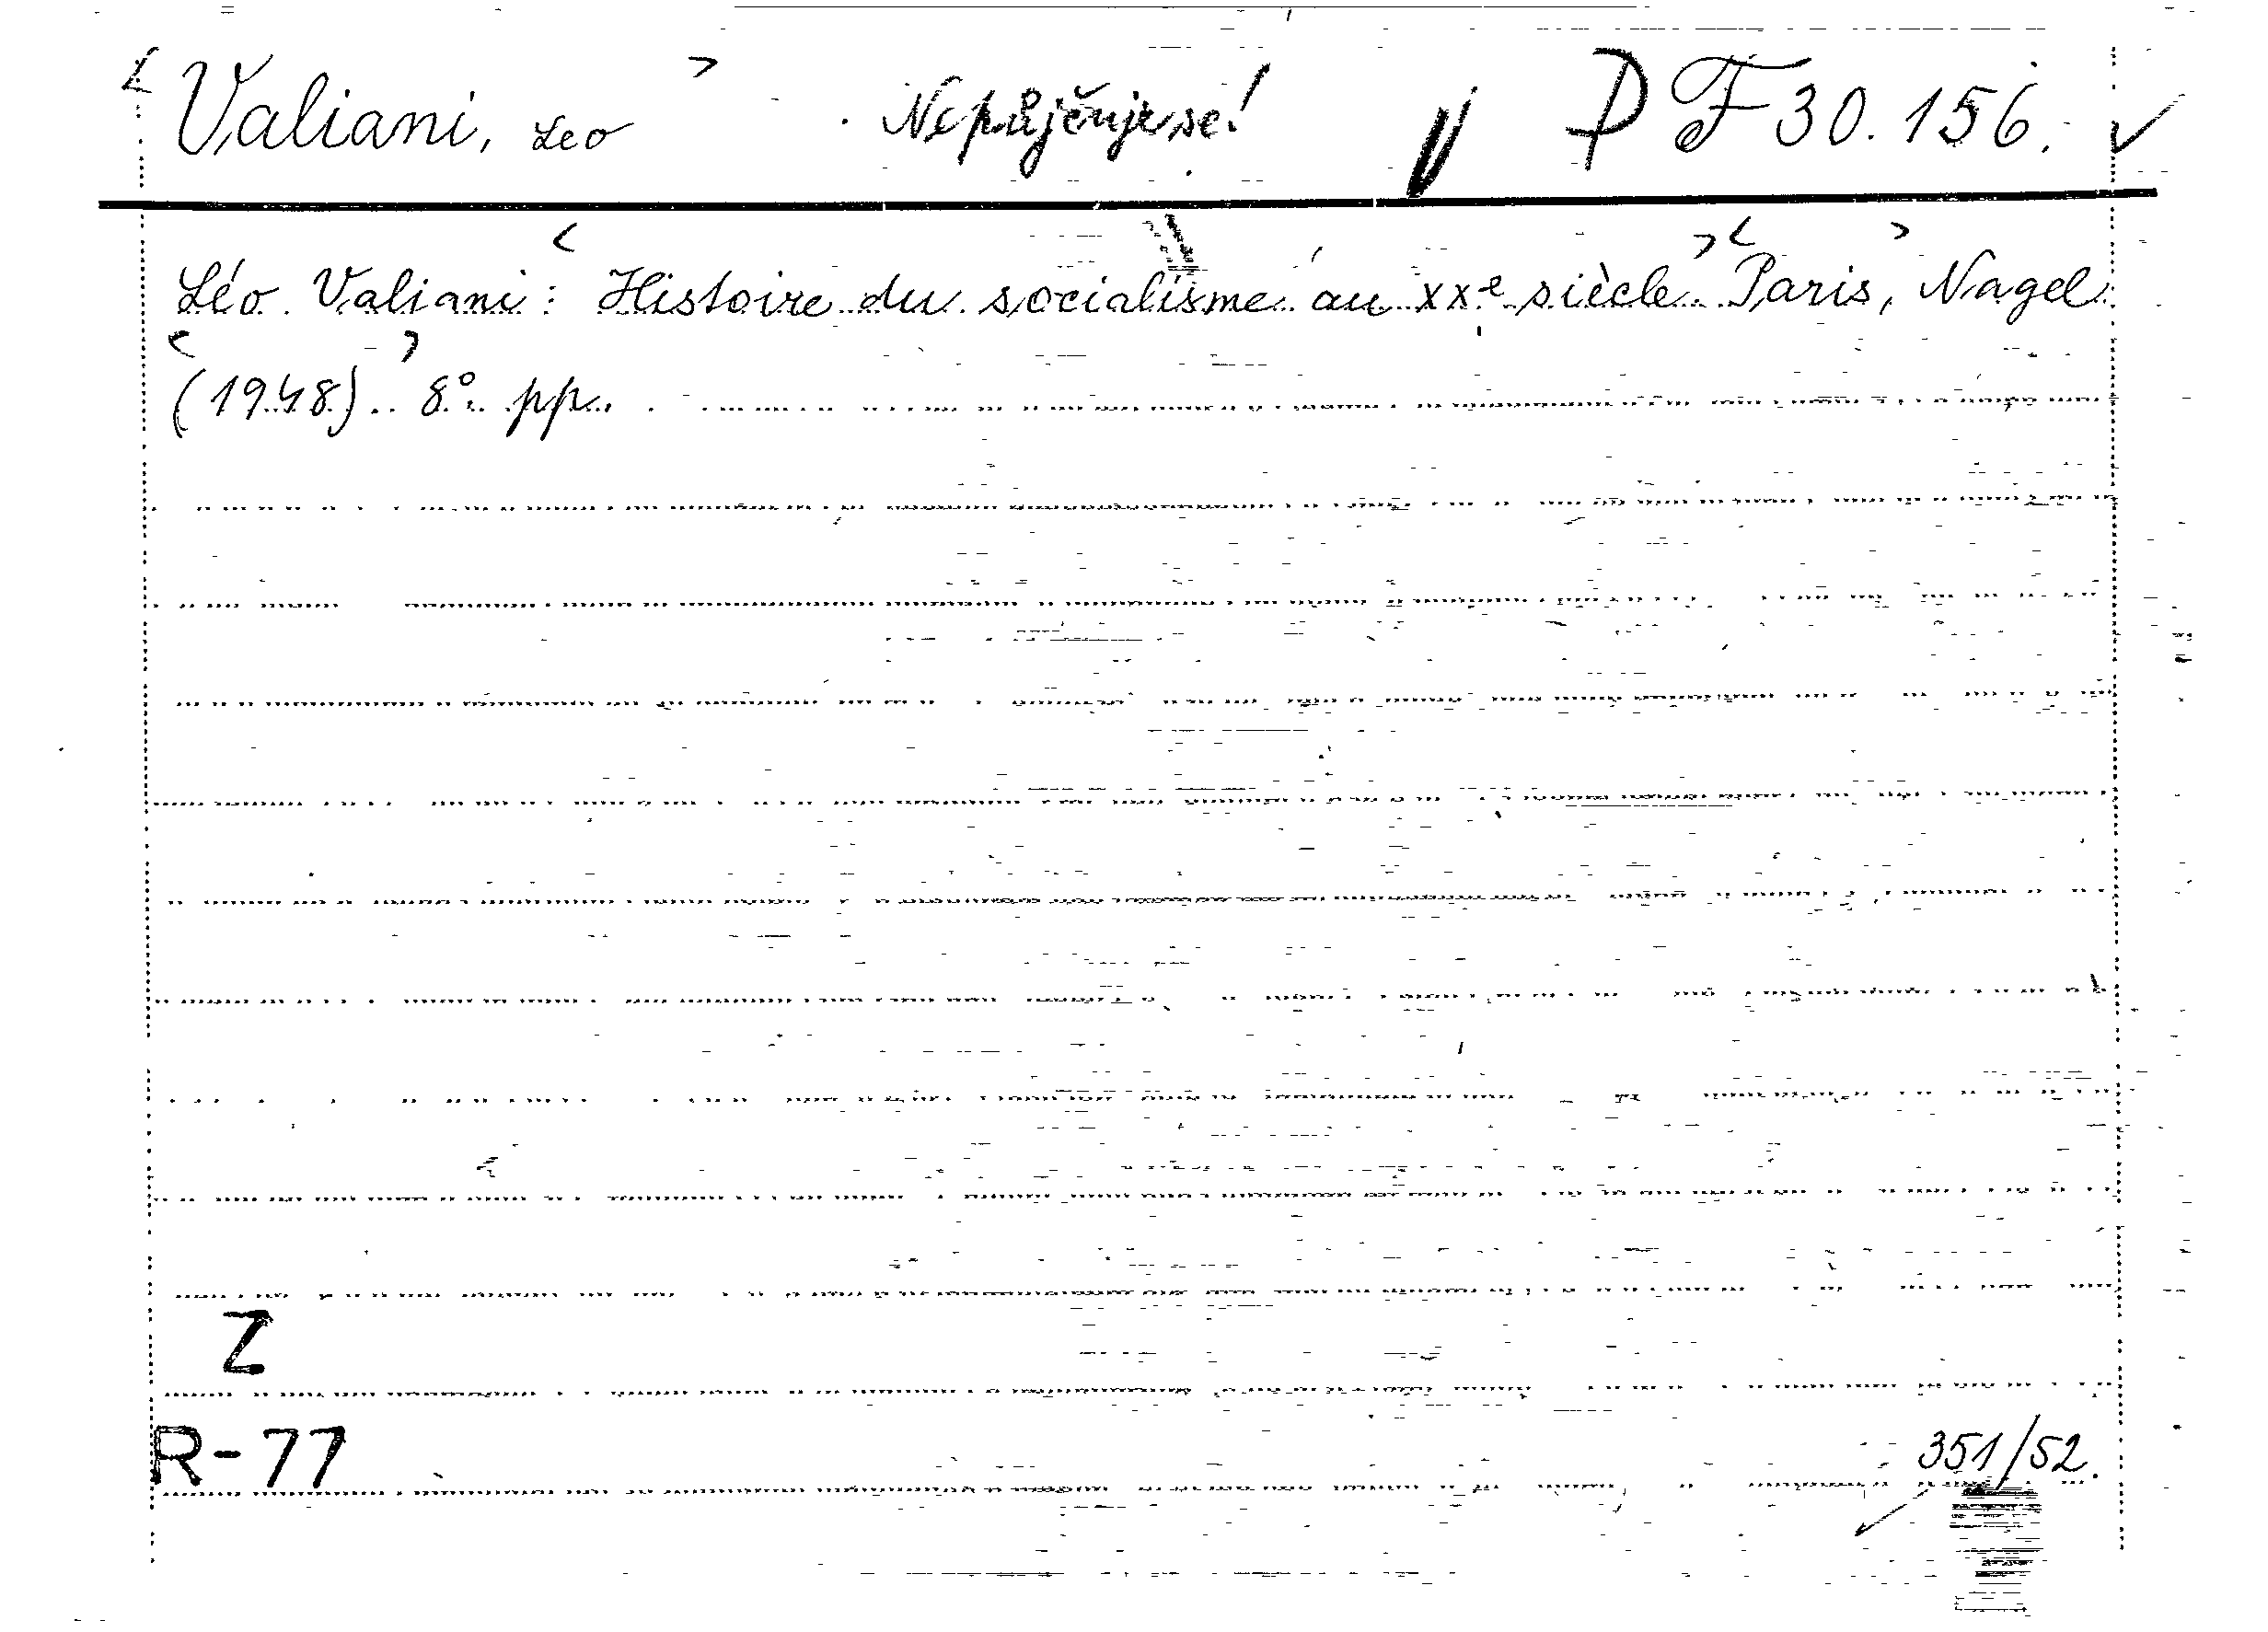 Valiani, Leo Nepůjčuje se! P F 30.156.
Léo Valiani: Histoire du socialisme au xxe siècle. Paris, Nagel
(1948). 8°. pp.
Z
R-77
351/52.